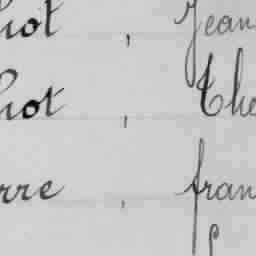 iot , Jean
hot , The
rre , fran